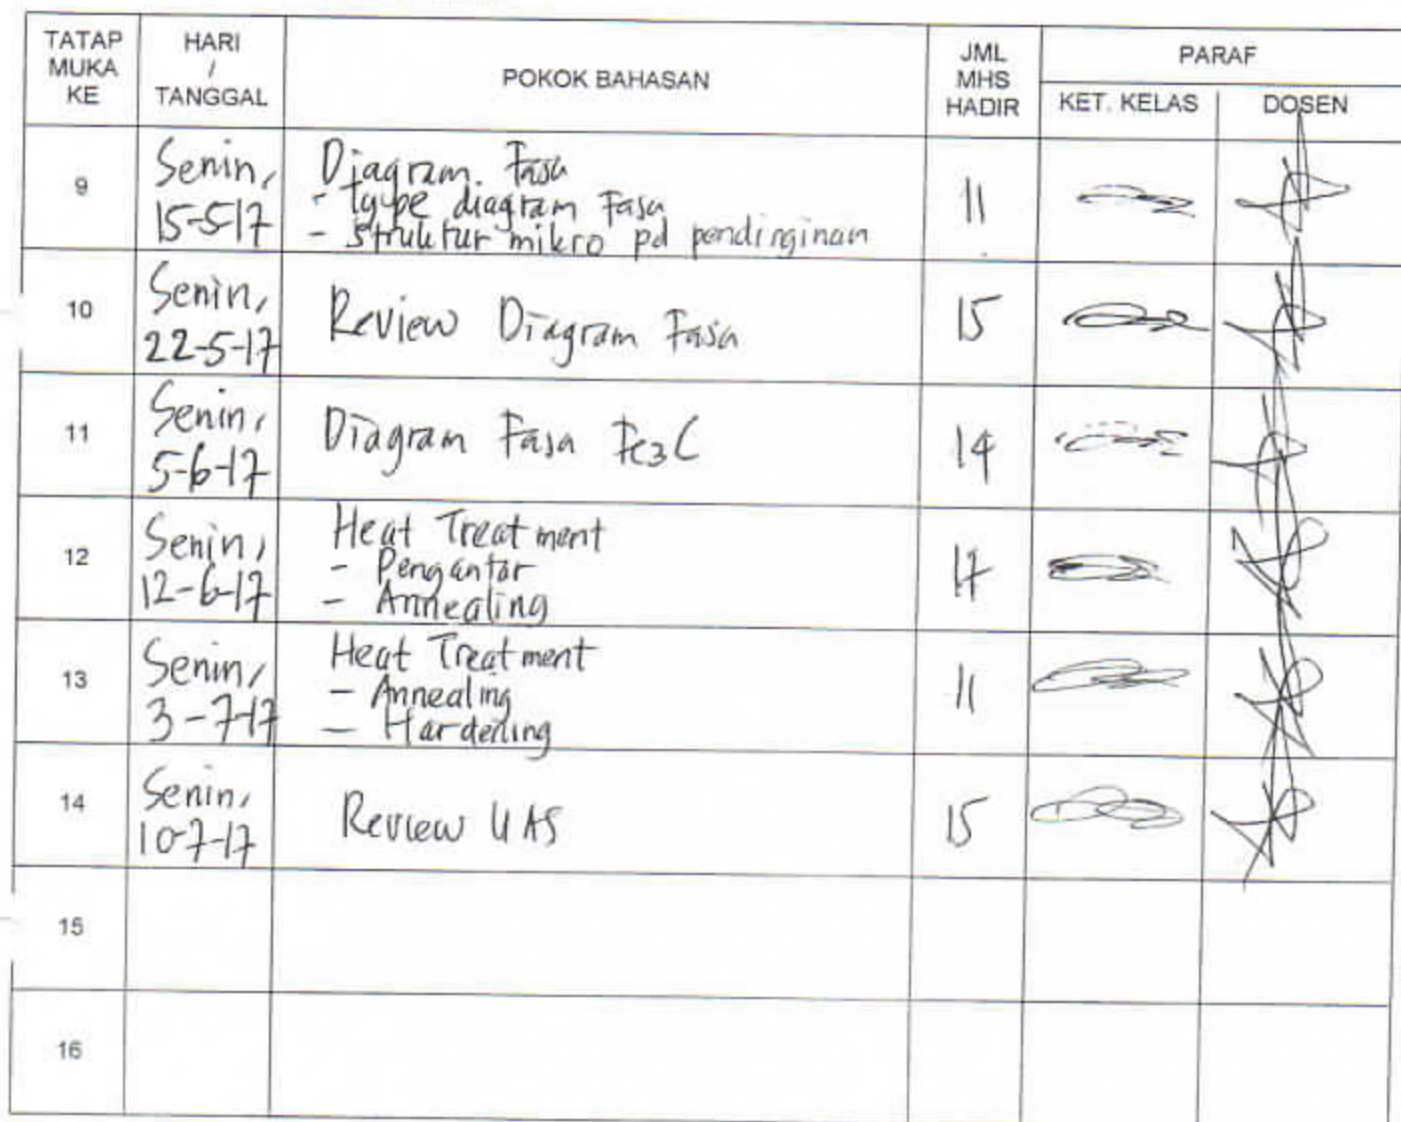 TATAP MUKA KE | HARI / TANGGAL | POKOK BAHASAN | JML MHS HADIR | PARAF
KET. KELAS | DOSEN
9 | Senin, 15-5-17 | Diagram Fasa
- type diagram Fasa
- struktur mikro pd pendinginan | 11
10 | Senin, 22-5-17 | Review Diagram Fasa | 15
11 | Senin, 5-6-17 | Diagram Fasa Fe3C | 14
12 | Senin, 12-6-17 | Heat Treatment
- Pengantar
- Annealing | 17
13 | Senin, 3-7-17 | Heat Treatment
- Annealing
- Hardening | 11
14 | Senin, 10-7-17 | Review UAS | 15
15
16